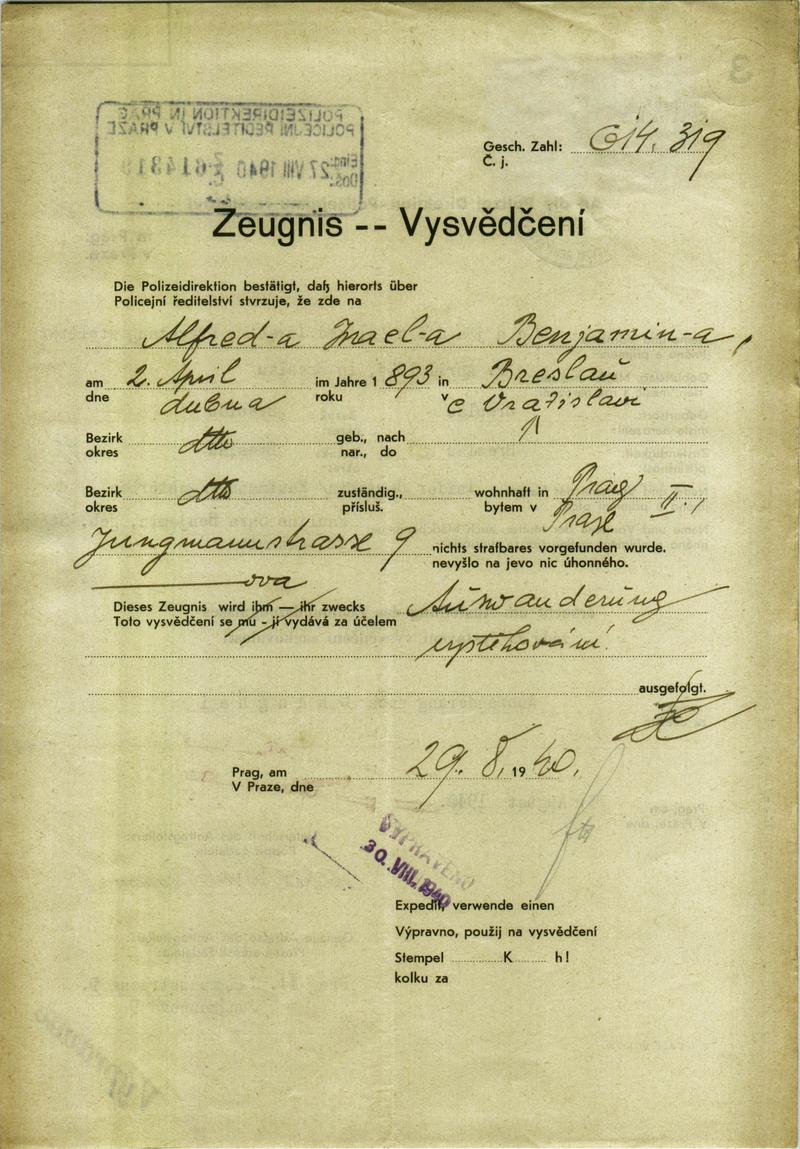 POLIZEIDIREKTION IN PRAG
POLICEJNÍ ŘEDITELSTVÍ V PRAZE
Eing.: 27 VIII 1940
Doš.:
Gesch. Zahl: 614.319
Č. j.
Zeugnis -- Vysvědčení
Die Polizeidirektion bestätigt, daß hierorts über
Policejní ředitelství stvrzuje, že zde na
Alfred-a Israel-a Benjamin-a,
am 2. April im Jahre 1 893 in Breslau
dne dubna roku v e Vratislavi
Bezirk dtto geb., nach
okres nar., do
Bezirk dtto zuständig., wohnhaft in Prag II.,
okres přísluš. bytem v Praze
Jungmannstrasse 9 nichts strafbares vorgefunden wurde.
ova nevyšlo na jevo nic úhonného.
Dieses Zeugnis wird ihm — ihr zwecks Auswanderung
Toto vysvědčení se mu - jí vydává za účelem vystěhování.
ausgefolgt.
Prag, am 29. 8. 19 40.
V Praze, dne
VYPRAVENO
30. VIII. 1940
Expedit, verwende einen
Výpravno, použij na vysvědčení
Stempel K h!
kolku za